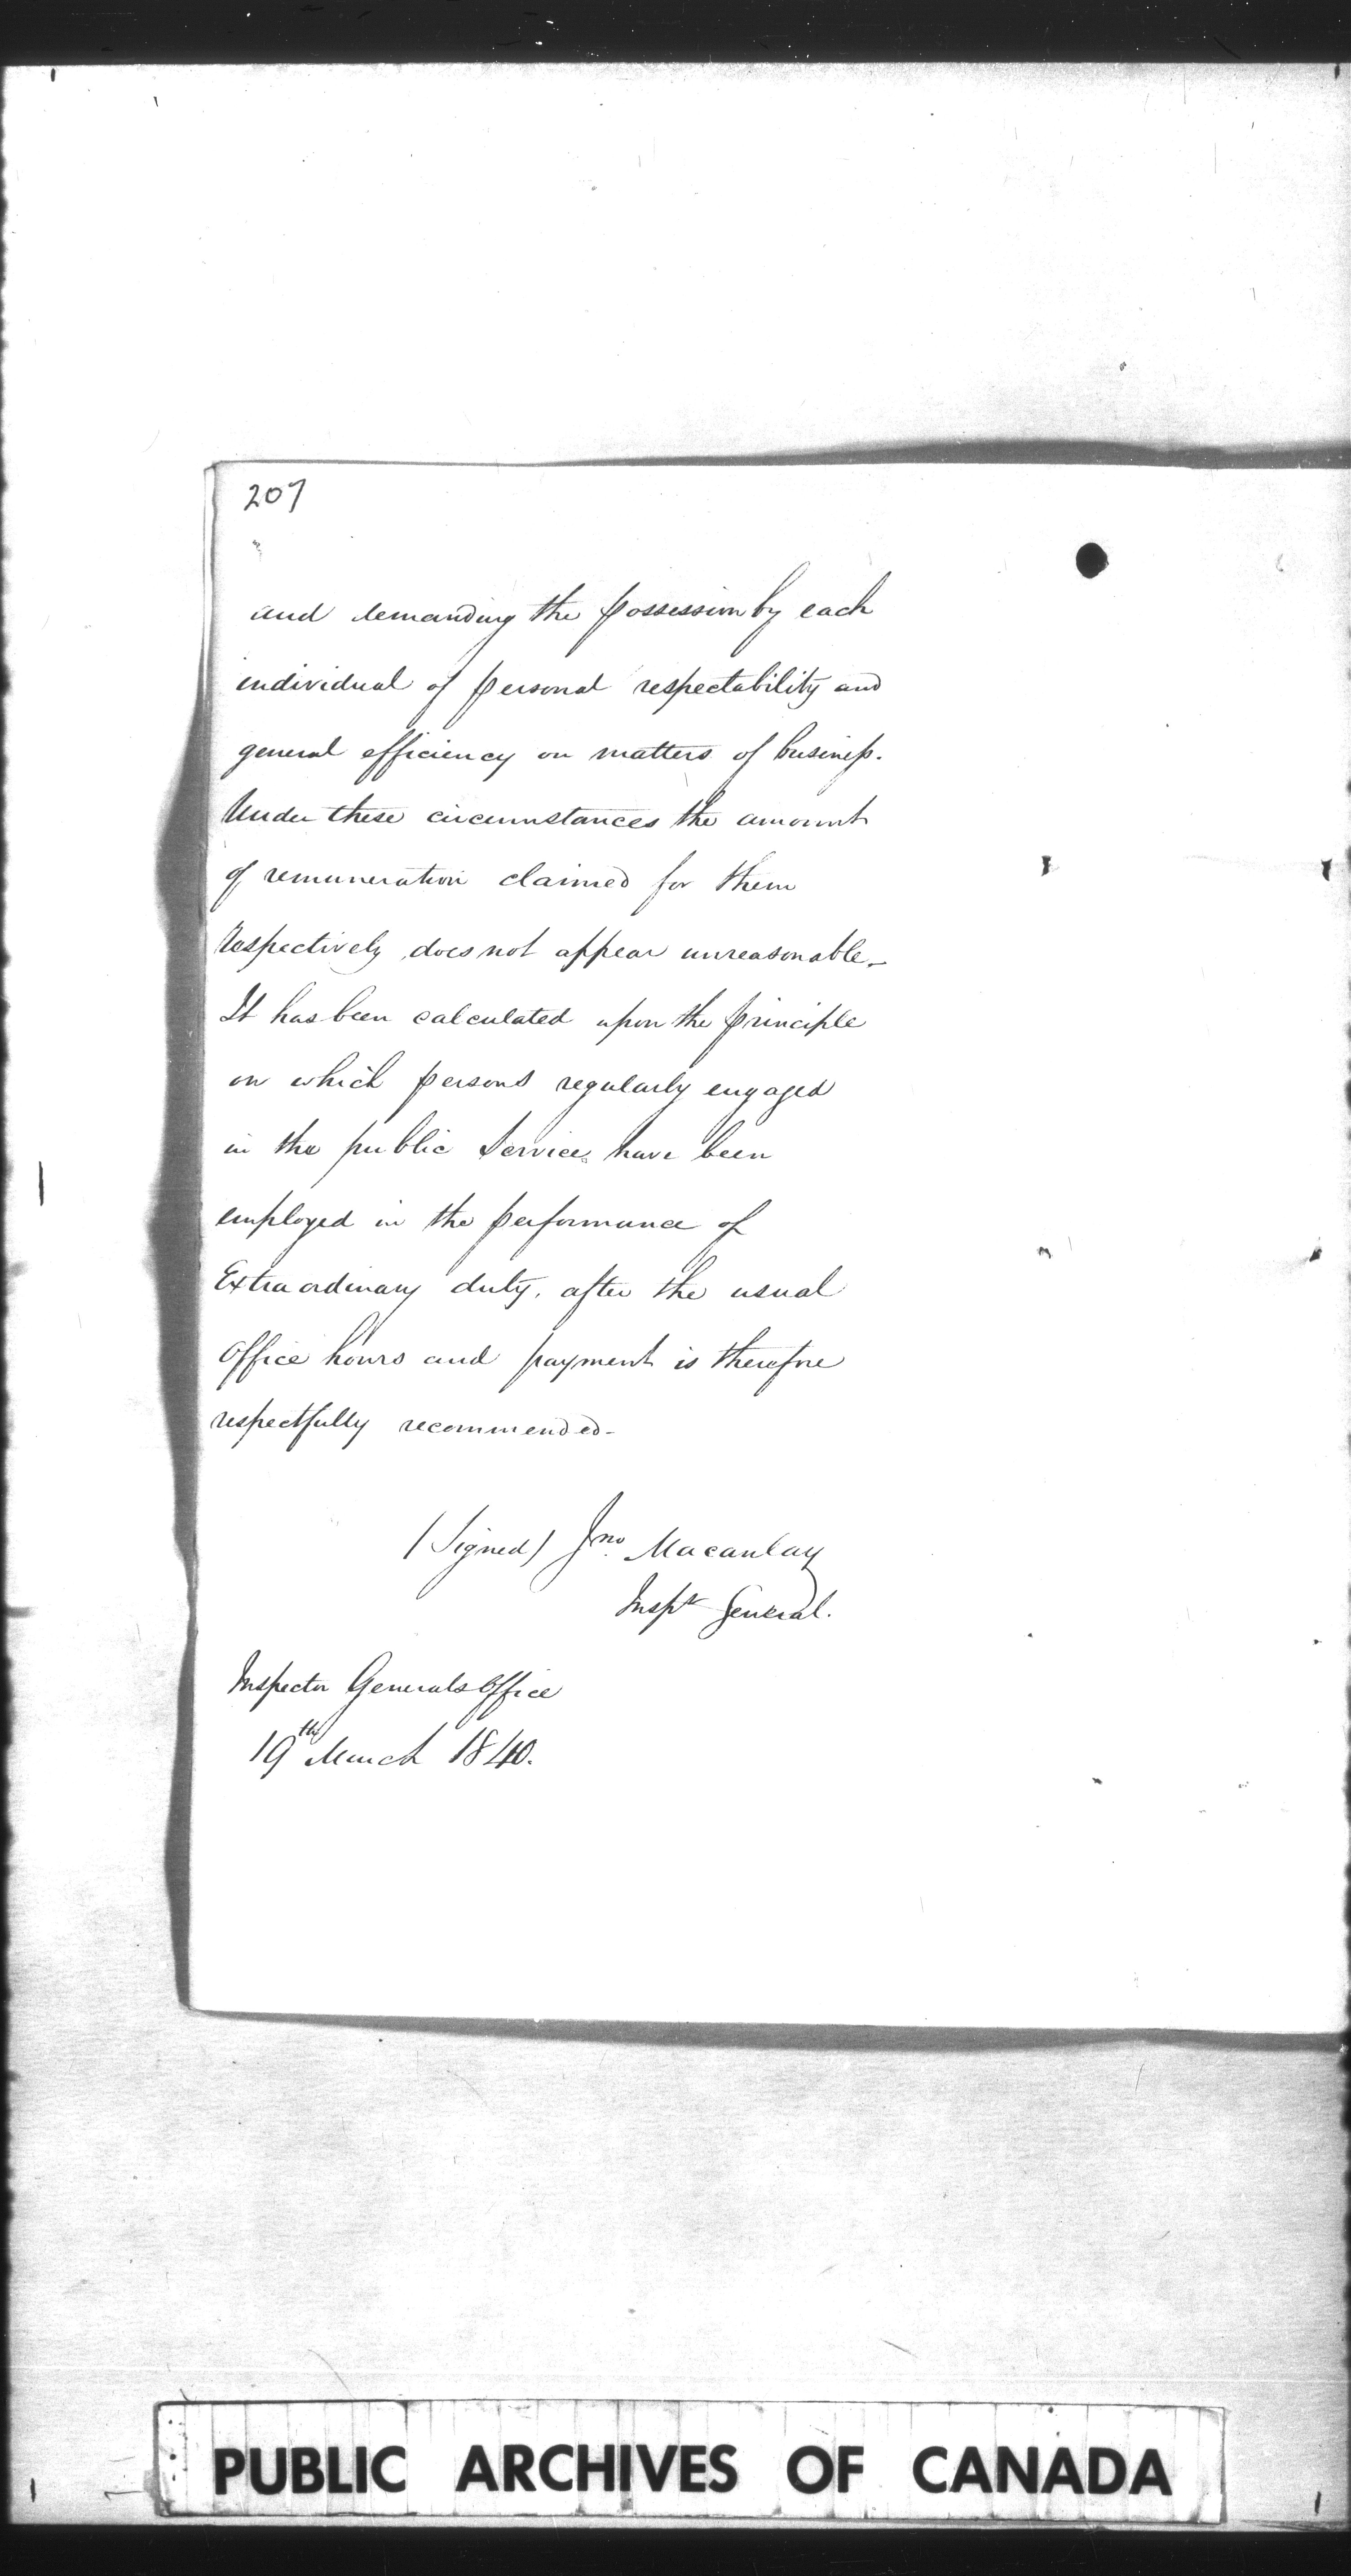 207
and demanding the possession by each
individual of personal respectability and
general efficiency on matters of business.
Under these circumstances the amount
of remuneration claimed for them
respectively does not appear unreasonable_
It has been calculated upon the principle
on which persons regularly engaged
in the public Service have been
employed in the performance of
Extraordinary duty, after the usual
Office hours and payment is therefore
respectfully recommended-
(Signed) Jno. Macaulay
Inspr General.
Inspector Generals Office
19th March 1840.
PUBLIC ARCHIVES OF CANADA